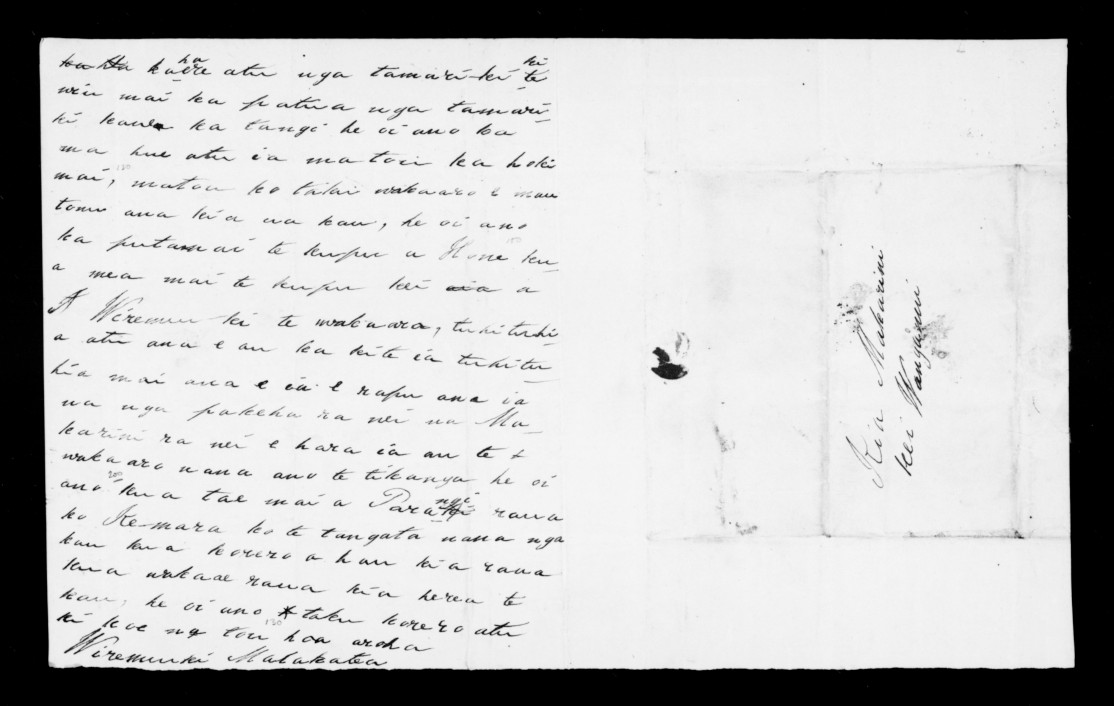 ka haere atu nga tamariki ki te
wiu mai ka patua nga tamari-
ki kaua ka tangi he oi ano ka
ma hue atu ia matou ka hoki
mai, matou ko taku wakaaro e mau
tonu ana kia ua kau, he oi ano
ka puta mai te kupu a Hone ku-
a mea mai te kupu kei a
A Wiremu ki te wakaaro, tuhituhi-
a atu ana e au ka kite ia tuhitu-
hia mai ana e ia e rapu ana ia
na nga pakeha ra nei na Ma-
karini ra nei e hara ia au te
wakaaro nana ano te tikanga he oi
ano kua tae mai a Parangi raua
ko Kemara ko te tangata nana nga
kau kua korero a hau kia raua
kua wakaae raua kia herea te
kau, he oi ano taku korero atu
ki koe na tou hoa aroha
Wiremu ki Matakatea
Kia Makarini
kei Wanganui